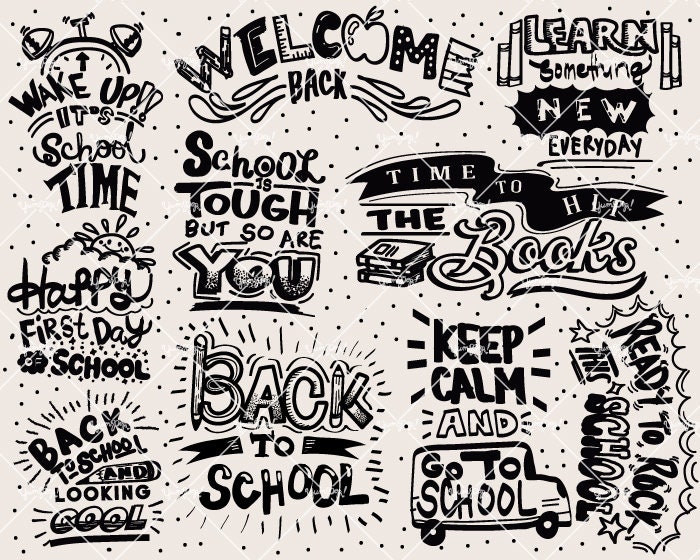 WAKE UP!!
IT'S
School
TIME
WELCOME
BACK
LEARN
Something
NEW
EVERYDAY
School
IS
TOUGH
BUT SO ARE
YOU
TIME TO HIT
THE
Books
Happy
First Day
of SCHOOL
BACK
TO
SCHOOL
KEEP
CALM
AND
GO TO
SCHOOL
READY TO ROCK
THIS SCHOOL
BACK
TO SCHOOL
AND
LOOKING
COOL